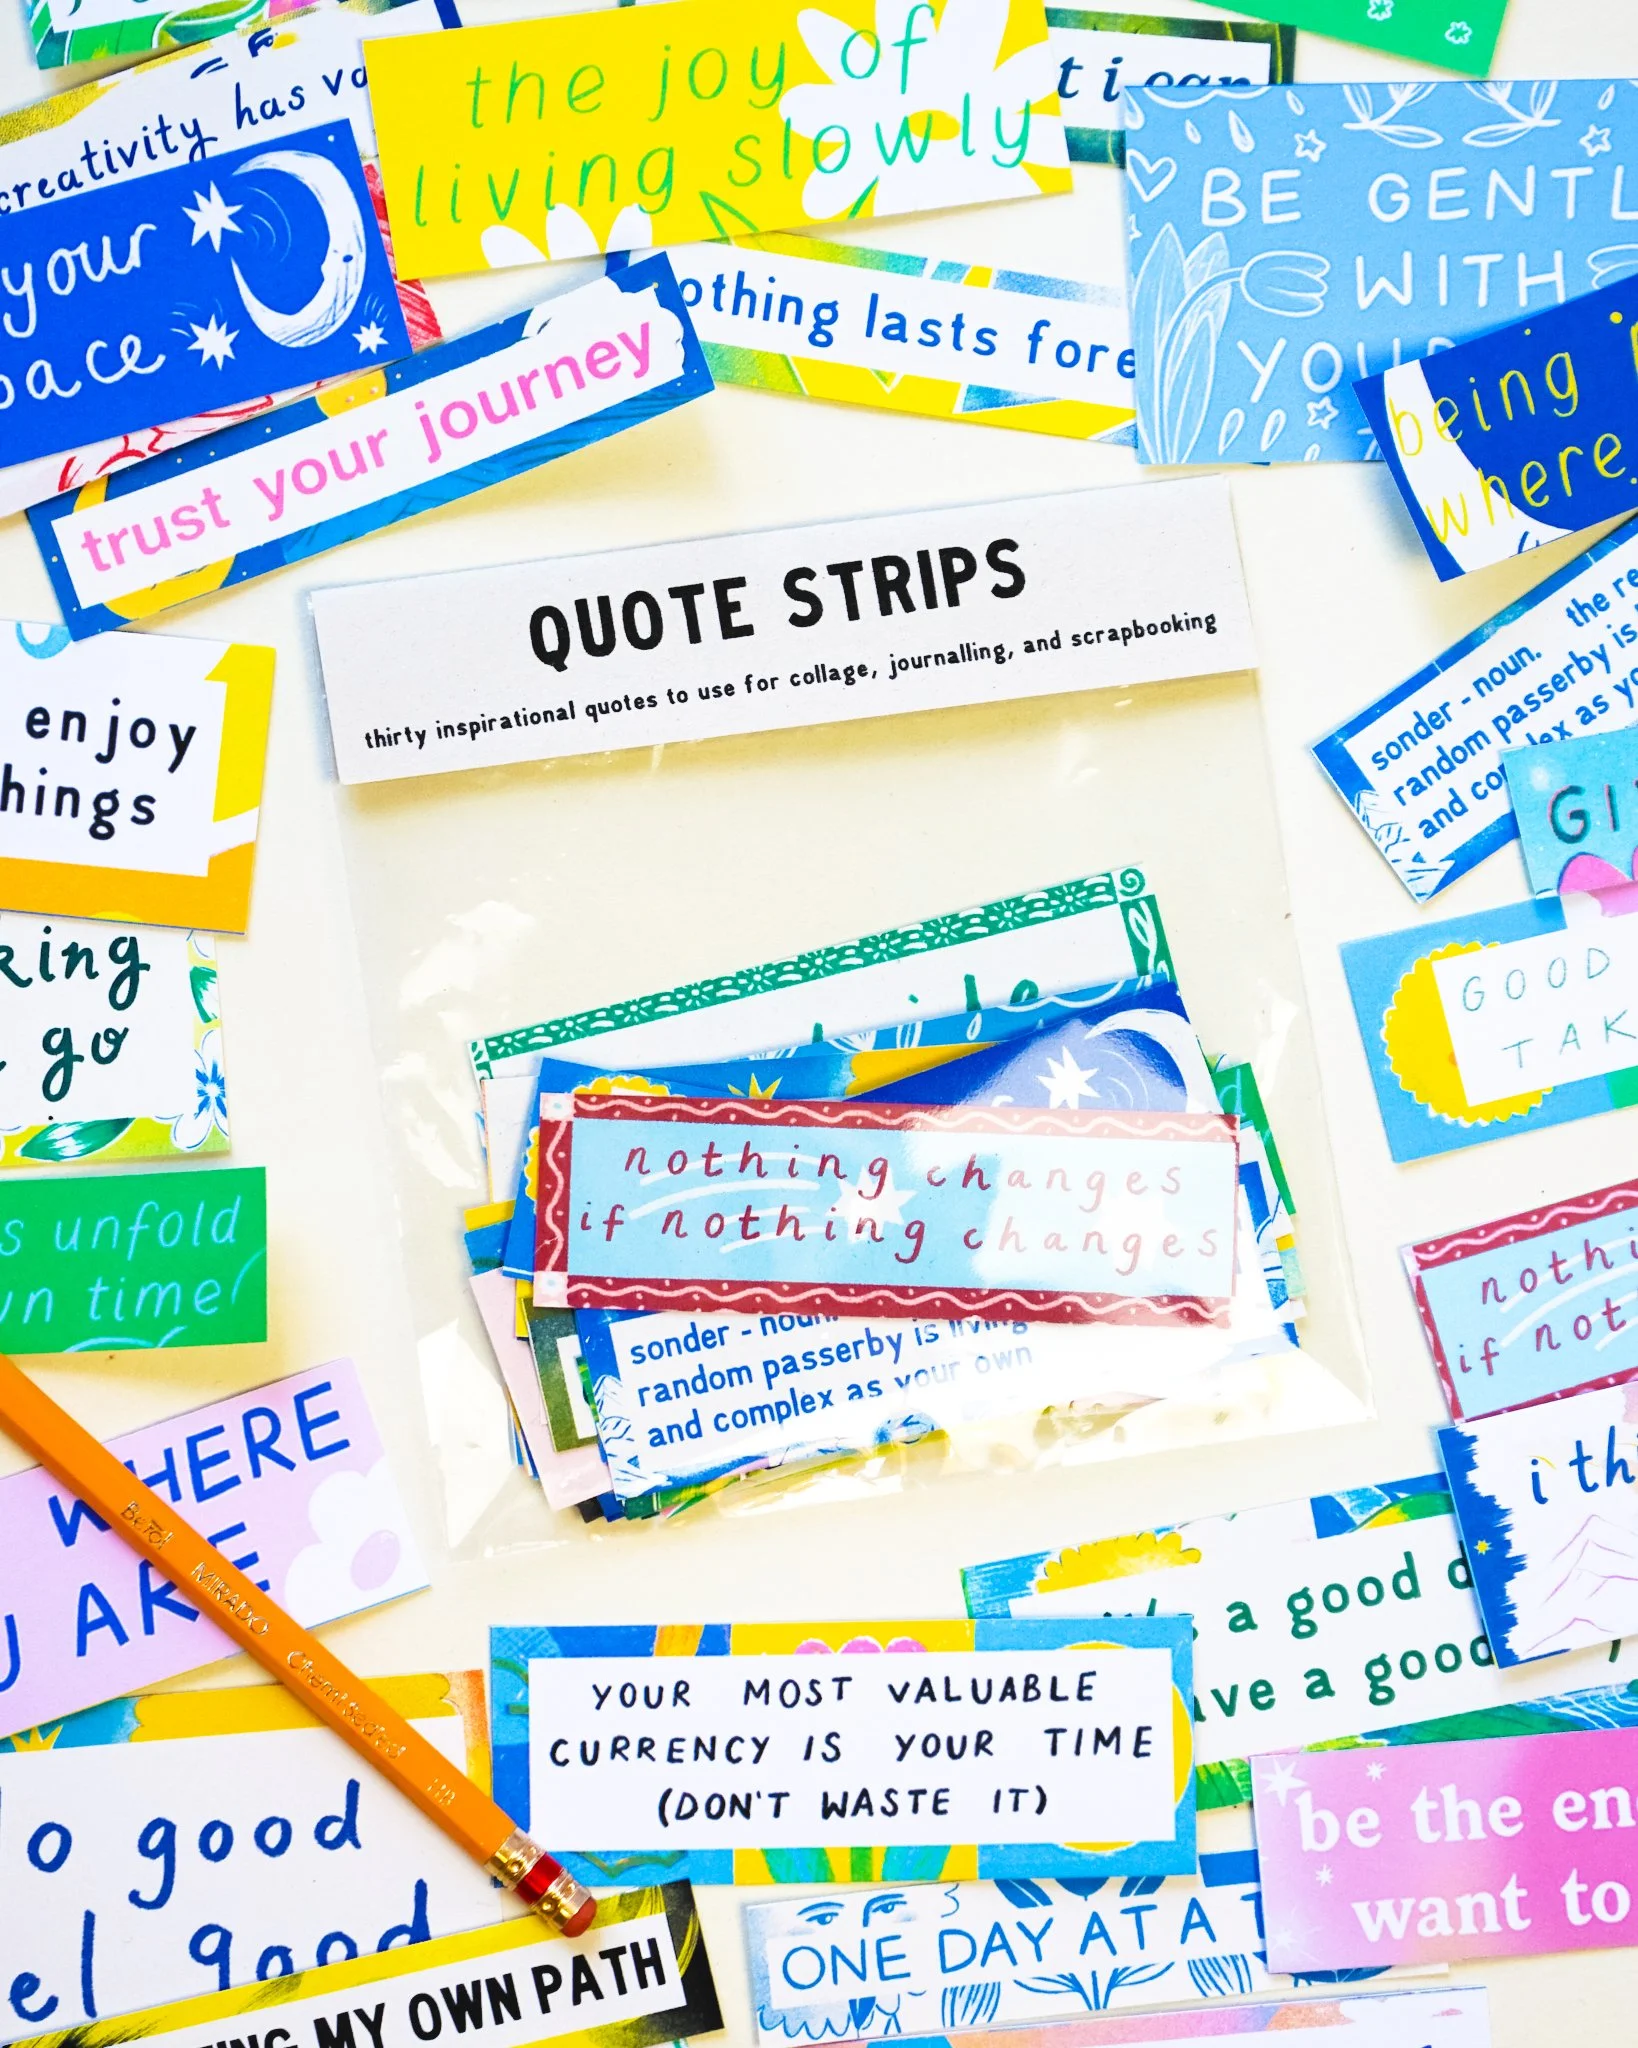 creativity has
your
trust your journey
the joy of
living slowly
t i can
othing lasts fore
BE GENTL
WITH
YOU
being
where
QUOTE STRIPS
thirty inspirational quotes to use for collage, journalling, and scrapbooking
enjoy
hings
king
go
s unfold
time
WHERE
ARE
sonder - noun. the re
random passerby is
and co lex as yo
GI
GOOD
TAK
nothing changes
if nothing changes
sonder - noun.
random passerby is living
and complex as your own
nothi
if not
i th
a good d
ave a good
YOUR MOST VALUABLE
CURRENCY IS YOUR TIME
(DON'T WASTE IT)
Berol MIRADO Chemi Sealed HB
o good
el good
MY OWN PATH
ONE DAY AT A T
be the en
want to